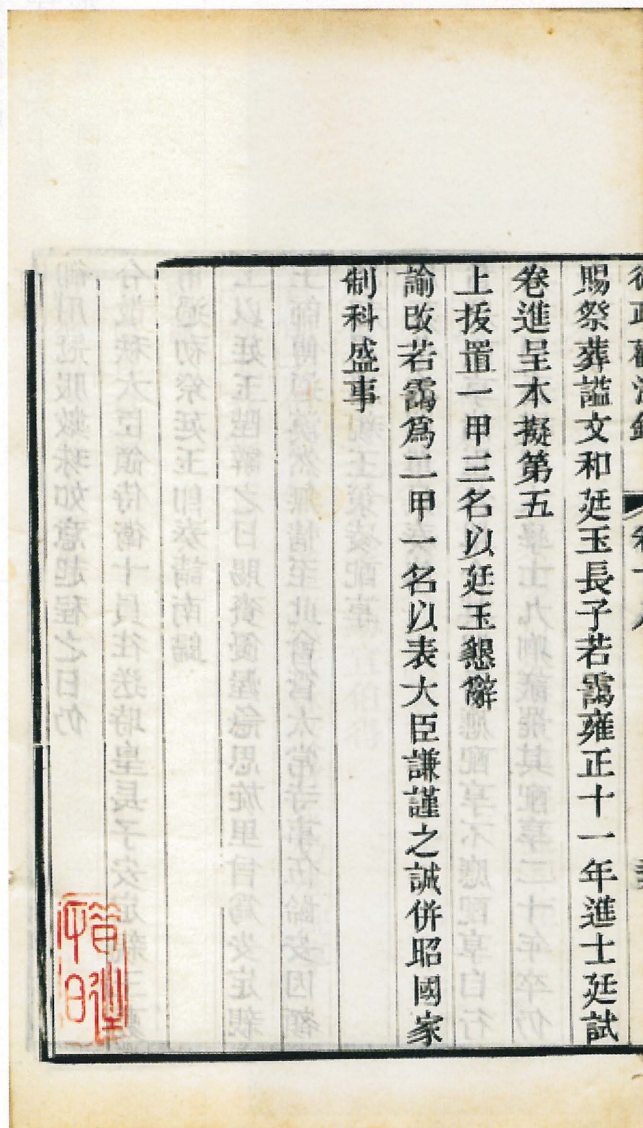 賜祭葬謚文和廷玉長子若靄雍正十一年進士廷試
卷進呈本擬第五
上拔置一甲三名以廷玉懇辭
諭改若靄爲二甲一名以表大臣謙謹之誠併昭國家
制科盛事